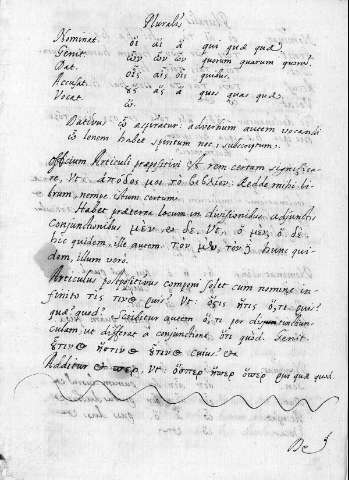 Pluralis
Nominat. οἵ αἵ ἅ qui quæ quæ
Genit. ὧν ὧν ὧν quorum quarum quorū.
Dat. οἷς αἷς οἷς quibus.
Accusat. οὓς ἃς ἃ quos quas quæ.
Vocat. ὦ.
Dativus ᾧ aspiratur: adverbium autem vocandi
ὦ tonem habet spiritum nec subscriptum.
Officium Articuli præpositivi est rem certum significa-
re, Vt: ἀπόδος μοι τὸ βιβλίον: Redde mihi li-
brum, nempe istum certum.
Habet præterea locum in divisionibus, adjunctis
Conjunctionibus μὲν, et δὲ. Vt, ὁ μὲν, ὁ δὲ.
hic quidem, ille autem. τὸν μὲν, τὸν δὲ. hunc qui-
dem, illum verò.
Articulus postpositivus componi solet cum nomine in-
finito τὶς τινὸς quis? Vt: ὅστις ἥτις ὅ,τι quis?
quæ? quod? Scribitur autem ὅ,τι per distinctiun-
culam, ut differat à conjunctione ὅτι quòd. Genit.
οὗτινος ἧστινος οὗτινος cuius? &c
Additur et περ, Vt: ὅσπερ ἥπερ ὅπερ qui quæ quod.
De